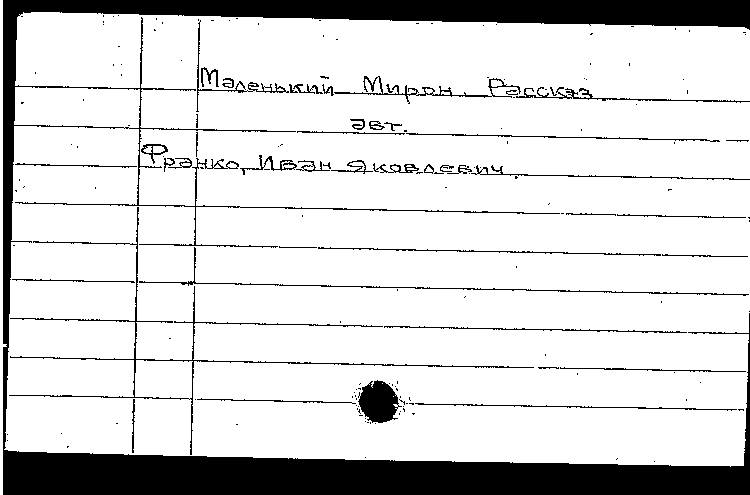 Маленький Мирон. Рассказ
авт.
Франко, Иван Яковлевич.